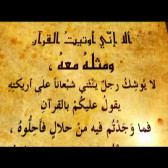 ألا إني أوتيت القرآن
ومثله معه ،
لا يُوشِكُ رجلٌ ينثني شبعاناً على أريكته
يقول عليكم بالقرآن
فما وجدتم فيه من حلالٍ فأحلّوه ،